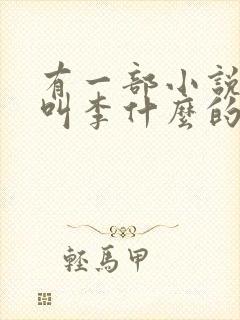 有一部小說
叫李什麼的
輕馬甲